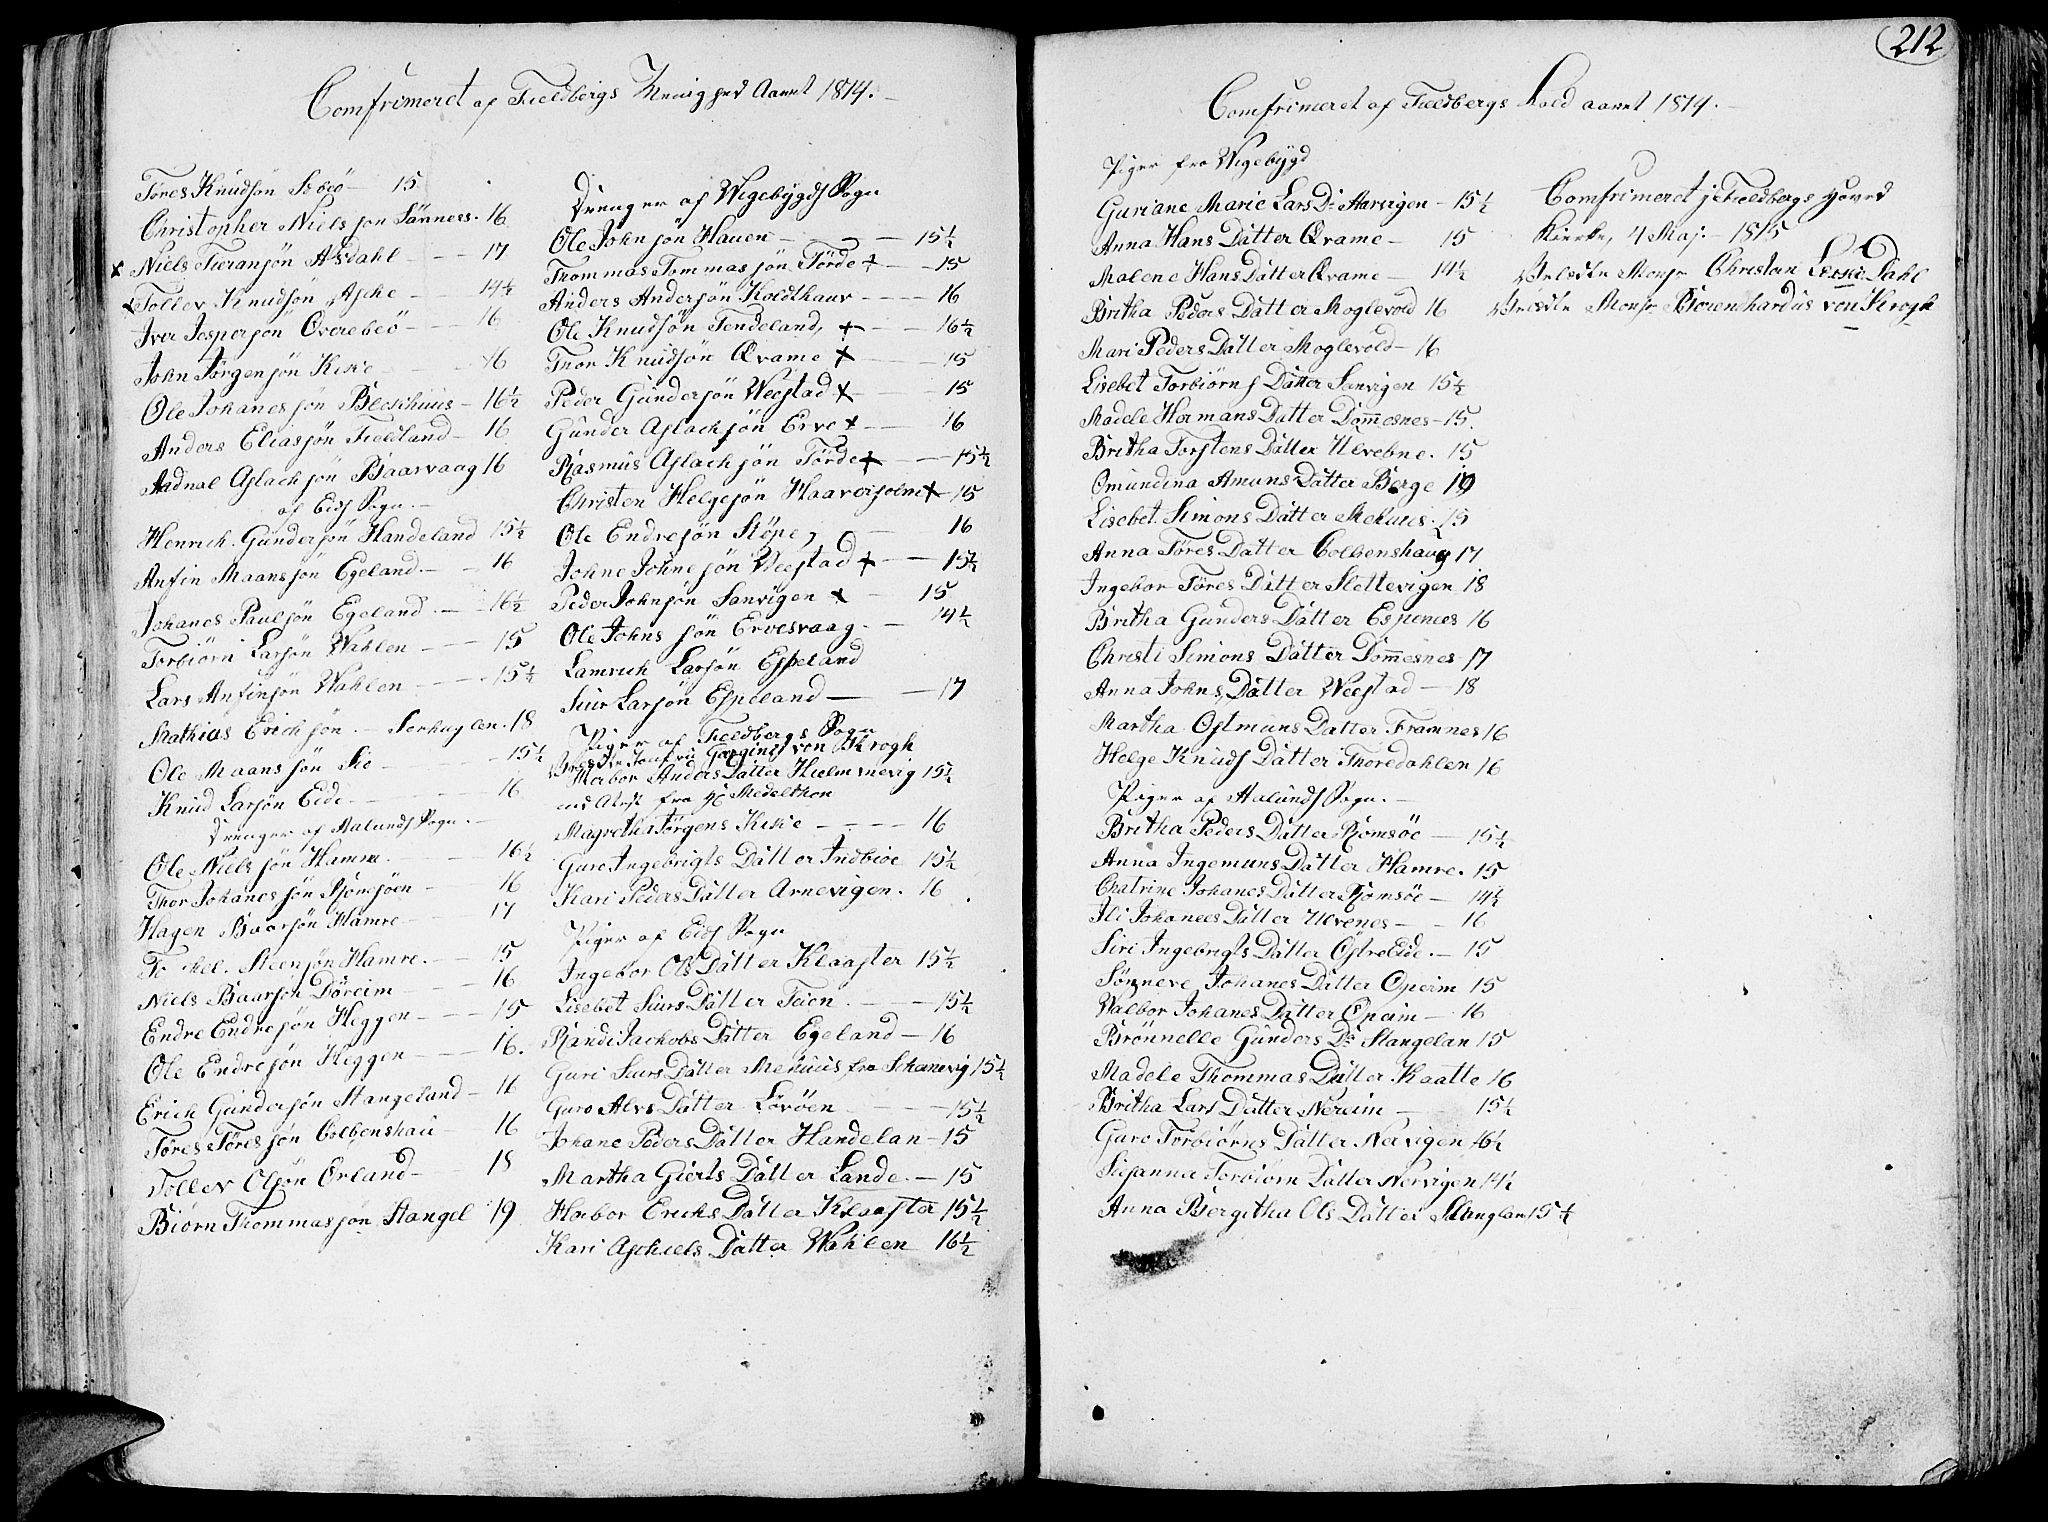 Comfrimeret af Fieldbergs Menighed Aaret 1814.
Tøres Knudsøn Sobeö 15
Christopher Nielssøn Sönnees. 16
x Niels Tieransøn Alsdahl 17
x Tollev Knudsøn Aske 14½
Iver Jespersøn Överebeö 16
John Jörgensøn Kixe 16
Ole Johanessøn Bleshuus 16½
Anders Eliassøn Fieldland 16
Aadnal Aslachsøn Baarvaag 16
af Eids Sogn.
Henrich Gundersøn Handeland 15½
Anfin Maanssøn Egeland 16
Johanes Paulsøn Egeland 16½
Torbiörn Larsøn Wahlen 15
Lars Anfinsøn Wahlen 15½
Mathias Erichsøn Serhuglen. 18
Ole Maanssøn Sie 15½
Knud Larsøn Eide 16
Drenger af Aalunds Sogn.
Ole Nielssøn Hamre 16½
Thor Johanessøn 16
Hagen Baarsøn Hamre 17
Steensøn Hamre. 15
Niels Baarsøn Döreim 16
Endre Endresøn Heggen 15
Ole Endresøn Heggen 16.
Erich Gundersøn Stangeland 16
Töres Töresøn Colbenshau 16
Tollev Olsøn Örland 18
Biörn Thommassøn Stangel 19
Drenger af Wigebygds Sogn
Ole Johnsøn Hauen 15½
Thommas Tommassøn Törde x 15
Anders Andersøn Holdthaur 16
Ole Knudsøn Tendeland, x 16½
Thor Knudsøn Qvame x 15
Peder Gundersøn Weestad x 15
Gunder Aslachsøn Erve x 16
Rasmus Aslachsøn Törde x 15½
Christen Helgesøn Haaverholm x 15
Ole Endresøn Stöpe, 16
Johne Johnesøn Weestad x 15½
Peder Johnsøn Sanvigen x 15
Ole Johnssøn Ervesvaag 14½
Lamrich Larsøn Espeland
Siur Larsøn Espeland 17
Piger af Fieldbergs Sogn
Jomfrue von Krogh
Herbor Anders Datter Hielmenevig 15½
fra Medelthon
Magretha Jörgens Kixe 16
Guro Ingebrigts Datter Indbioe 15½
Kari Peders Datter Arnevigen. 16
Piger af Eids Sogn
Ingebor Ols Datter Klaaster 15½
Lisebet Siurs Datter Teien 15½
Randi Jachobs Datter Egeland 16
Guri Siurs Datter Mehuus fra Schanevig 15½
Guro Alvs Datter Leröen 15½
Johane Peders Datter Handelan 15
Martha Gierts Datter Lande. 15
Herbor Erichs Datter Klaaster 15½
Kari Aschiels Datter Wahlen 16½
212
Comfrimeret af Fieldbergs Kald aaret 1814.
Piger fra Wigebygd
Guriane Marie Lars D: Aarvigen 15½
Anna Hans Datter Qvame 15
Malene Hans Datter Qvame 14½
Britha Peders Datter Moglevold 16
Mari Peders Datter Moglevold 16
Lisebet Torbiörns Datter Sanvigen 15½
Madele Hermans Datter Dom̄esnes 15.
Britha Torstens Datter Ulvebne. 15
Omundina Amuns Datter Berge 19
Lisebet Simons Datter Mehuus. 15
Anna Töres Datter Colbenshaug 17.
Ingebor Töres Datter Slettevigen 18
Britha Gunders Datter Espenes 16
Christi Simons Datter Dom̄esnes 17
Anna Johns Datter Weestad 18
Martha Ostmuns Datter Framnes 16
Helge Knuds Datter Thoredahlen 16
Piger af Aalunds Sogn.
Britha Peders Datter Romsöe 15½
Anna Ingemuns Datter Hamre. 15
Chatrine Johanes Datter Romsöe 14½
Ili Johanees Datter Ulvenes 16
Siri Ingebrigts Datter ÖstreEide. 15
Sönneve Johanes Datter Opeim 15
Walbor Johanes Datter Opeim 16
Brönnelle Gunders D: Stangelan 15
Madele Thommas Datter Kaatte 16
Britha Lars Datter Nereim 15½
Guro Torbiörns Datter Nervigen 16½
Susanna Torbiörn Datter Nervigen 14½
Anna Bergitha Ols Datter Stanglan 15½
Comfrimeret i Fieldbergs Hoved
Kierke, 4 Maj. 1815
Monsr Christian Dahl
Monsr von Krogh